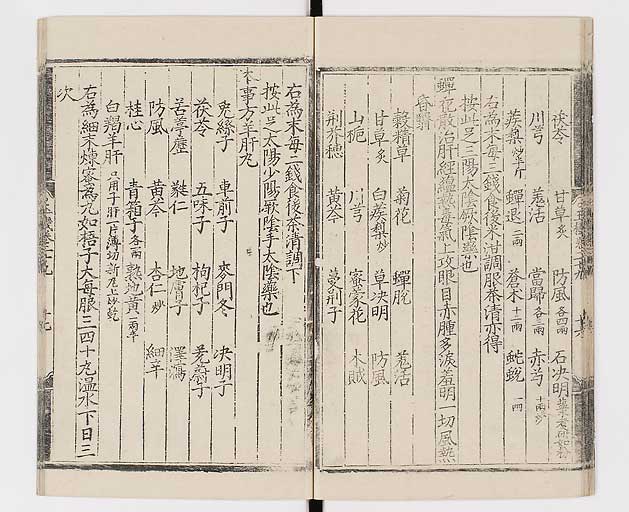 茯苓 甘草炙 防風各四兩 石決明
川芎 羗活 當歸各三兩 赤芍十兩炒
蒺䔧炒半斤 蟬退二兩 蒼朮十二兩 蛇蛻一兩
右為末每二錢食後米泔調服茶清亦得
按此足三陽太陰厥陰藥也
蟬花散治肝經蘊熱毒氣上攻眼目赤腫多淚羞明一切風熱
昏翳
穀精草 菊花 蟬脫 羗活
甘草炙 白蒺䔧炒 草決明 防風
山梔 川芎 蜜蒙花 木賊
荆芥穗 黃芩 蔓荆子
右為末每二錢食後茶清調下
按此足太陽少陽厥陰手太陰藥也
本事方羊肝丸
兎絲子 車前子 麥門冬 决明子
茯苓 五味子 枸杞子 茺蔚子
苦葶藶 蕤仁 地膚子 澤瀉
防風 黃芩 杏仁炒 細辛
桂心 青葙子各一兩 熟地黃一兩半
白羯羊肝只用子肝一片薄切新瓦上炒乾
右為細末煉蜜為丸如梧子大每服三四十丸温水下日三
次